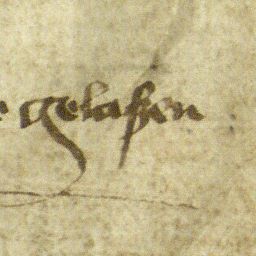 e gelaßen